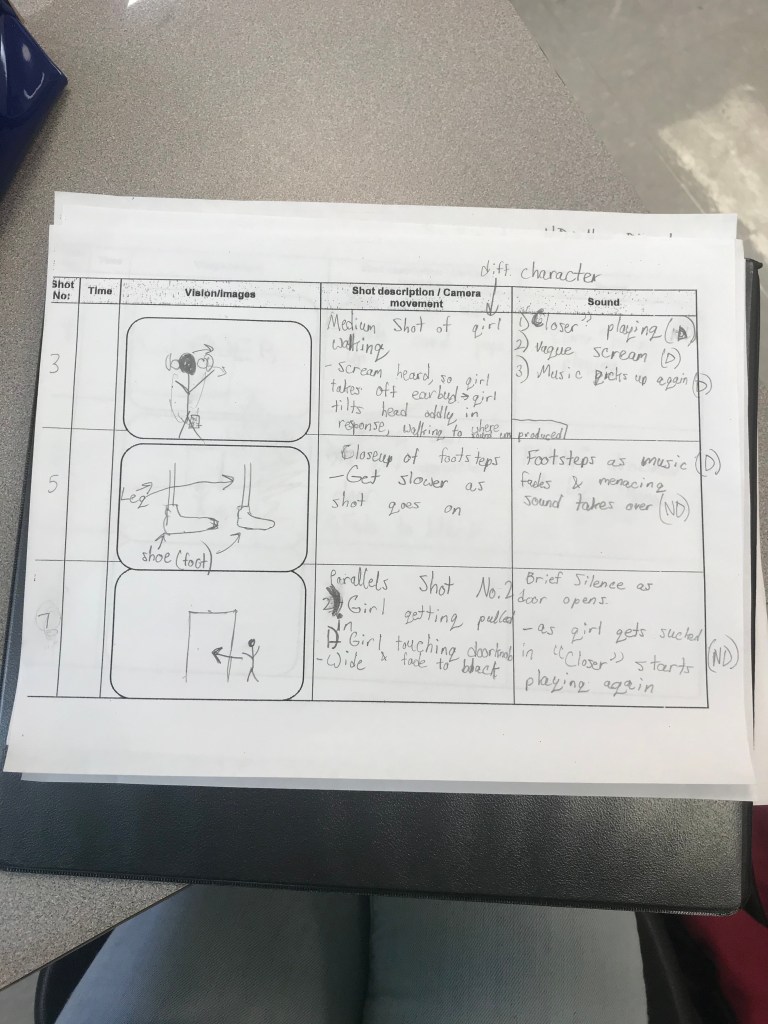 diff. character
Shot No:
Time
Vision/images
Shot description / Camera movement
Sound
3
Medium Shot of girl
walking
- Scream heard, so girl
takes off earbud → girl
tilts head oddly in
response, walking to where
sound was produced
1) "Closer" playing
2) vague scream (D)
3) Music picks up again (D)
5
Leg
shoe (foot)
Closeup of footsteps
- Get slower as
shot goes on
Footsteps as music (D)
fades & menacing
sound takes over (ND)
7
Parallels Shot No. 2
2) Girl getting pulled
in
1) Girl touching doorknob
- Wide & fade to black
Brief Silence as
door opens.
- as girl gets sucked
in "Closer" starts (ND)
playing again